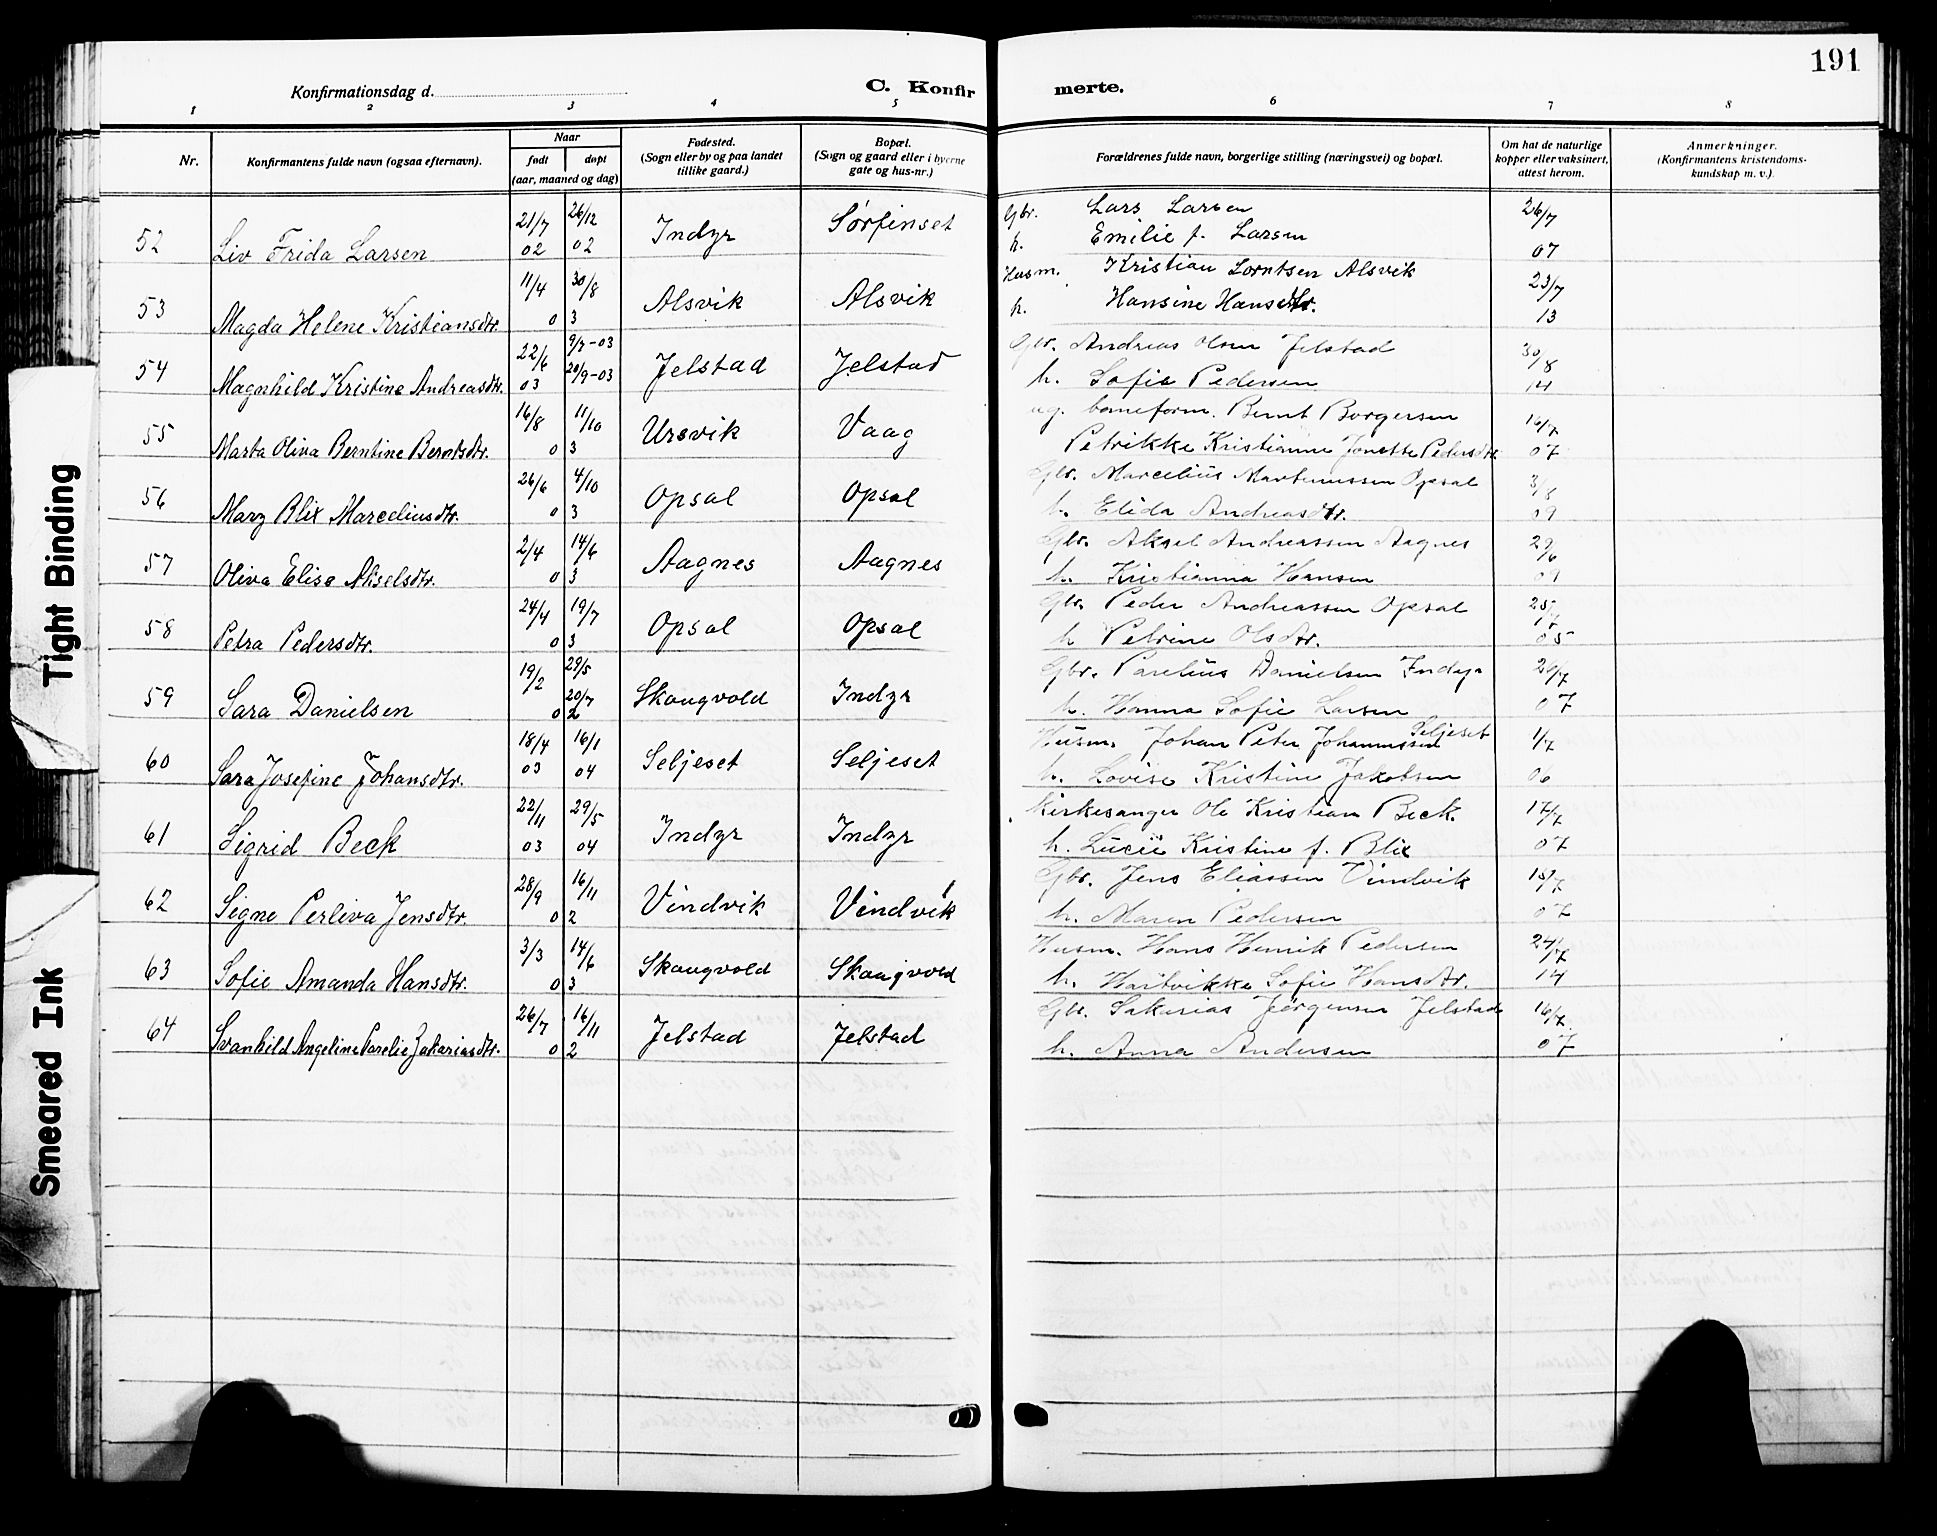 191
Konfirmationsdag d.
C. Konfirmerte.
1 2 3 4 5 6 7 8
Nr.
Konfirmantens fulde navn (ogsaa efternavn).
Naar
født døpt
(aar, maaned og dag)
Fødested.
(Sogn eller by og paa landet
tillike gaard.)
Bopæl.
(Sogn og gaard eller i byerne
gate og hus-nr.)
Forældrenes fulde navn, borgerlige stilling (næringsvei) og bopæl.
Om hat de naturlige
kopper eller vaksinert,
attest herom.
Anmerkninger.
(Konfirmantens kristendoms-
kundskap m. v.).
21/7 26/12 Gbr. Lars Larsen 26/7
52 Liv Frida Larsen 02 02 Indyr Sørfinset h. Emilie f. Larsen 07
11/4 30/8 Husm. Kristian Lorntsen Alsvik 23/7
53 Magda Helene Kristiansdtr. 03 Alsvik Alsvik h. Hansine Hansdtr. 13
22/6 9/7-03 Gbr. Andreas Olsen Jelstad 30/8
54 Magnhild Kristine Andreasdtr. 03 20/9-03 Jelstad Jelstad h. Sofie Pedersen 14
16/8 11/10 ug. barneform. Bernt Borgersen 16/7
55 Marta Oliva Berntine Berntsdtr. 03 Ursvik Vaag Petrikke Kristianne Jonette Pedersdtr 07
26/6 4/10 Gbr. Marcelius Martinussen Opsal 3/8
56 Mary Blix Marceliusdtr. 03 Opsal Opsal h. Elida Andreasdtr. 09
2/4 14/6 Gbr. Aksel Andreassen Aagnes 29/6
57 Oliva Elise Akselsdtr. 03 Aagnes Aagnes h. Kristianna Hansen 09
24/4 19/7 Gbr. Peder Andreassen Opsal 25/7
58 Petra Pedersdtr. 03 Opsal Opsal h Petrine Olsdtr. 05
19/2 29/5 Gbr. Parelius Danielsen Indyr 20/7
59 Sara Danielsen 20/7 02 Skaugvold Indyr h. Hanna Sofie Larsen 07
18/4 16/1 Husm. Johan Peter Johannessen Seljeset 1/7
60 Sara Josefine Johansdtr. 03 04 Seljeset Seljeset h. Lovise Kristine Jakobsen 06
22/11 29/5 Kirkesanger Ole Kristian Beck. 17/7
61 Sigrid Beck 03 04 Indyr Indyr h. Lucie Kristine f. Blix 07
28/9 16/11 Gbr. Jens Eliassen Vindvik 15/7
62 Signe Perliva Jensdtr. 02 Vindvik Vindvik h. Maren Pedersen 07
3/3 14/6 Husm. Hans Henrik Pedersen
63 Sofie Amanda Hansdtr. 03 Skaugvold Skaugvold h. Hartvikke Sofie Hansdtr. 14
26/7 16/11 Gbr. Sakarias Jørgensen Jelstad 16/7
64 Svanhild Angeline Parelie Zakariasdtr. 02 Jelstad Jelstad h. Anna Andersen 07
Tight Binding
Smeared Ink